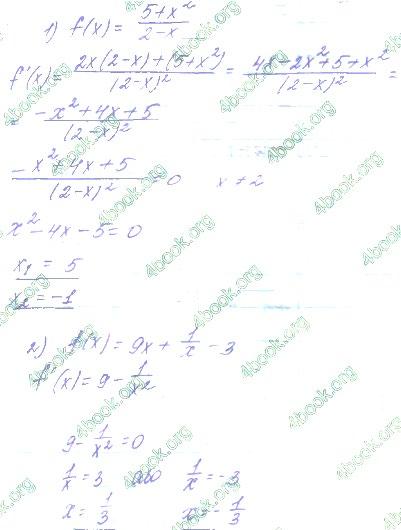 1) f(x) = (5+x²)/(2-x)
f'(x) = (2x(2-x)+(5+x²))/(2-x)² = (4x-2x²+5+x²)/(2-x)² =
= (-x²+4x+5)/(2-x)²
(-x²+4x+5)/(2-x)² = 0    x ≠ 2
x²-4x-5=0
x₁ = 5
x₂ = -1
2) f(x) = 9x + 1/x - 3
f'(x) = 9 - 1/x²
9 - 1/x² = 0
1/x = 3 або 1/x = -3
x = 1/3    x = -1/3
4book.org